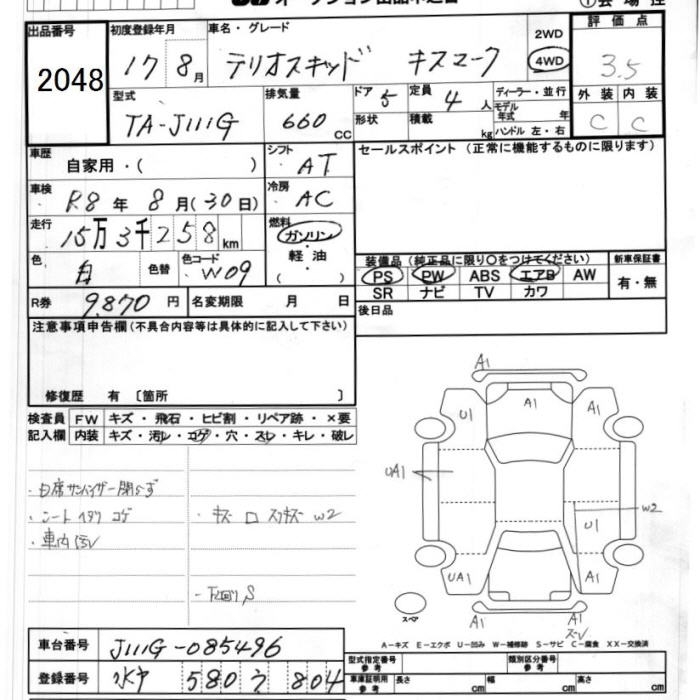 オークション出品申込書
出品番号 2048
初度登録年月 17 8月
車名・グレード テリオスキッド キスマーク
2WD 4WD
評価点 3.5
型式 TA-J111G
排気量 660 cc
ドア 5
形状
定員 4人
積載 kg
ディーラー・並行
モデル年式 年
ハンドル 左・右
外装 C
内装 C
車歴 自家用・( )
シフト AT
セールスポイント (正常に機能するものに限ります)
車検 R8年 8月(30日)
冷房 AC
走行 15万3千258km
燃料 ガソリン・軽油 ( )
色 白 色替
色コード W09
装備品 (純正品に限り○をつけてください)
PS PW ABS エアB AW
SR ナビ TV カワ
新車保証書 有・無
R券 9,870円
名変期限 月 日
後日品
注意事項申告欄(不具合内容等は具体的に記入して下さい)
修復歴 有 〔箇所 〕
検査員 FW キズ・飛石・ヒビ割・リペア跡・×要
記入欄 内装 キズ・汚レ・コゲ・穴・スレ・キレ・破レ
・シートヘタリ コゲ
・キズ ロ スリキズ W2
・下回りS
A1
U1 A1 A1
UA1
W2
U1
UA1 A1
A1 A1
スペア
A-キズ E-エクボ U-凹み W-補修跡 S-サビ C-腐食 XX-交換済
車台番号 J111G-085496
登録番号 水戸 580 う 804
型式指定番号 参考
類別区分番号 参考
車庫証明用 参考 長さ cm 幅 cm 高さ cm